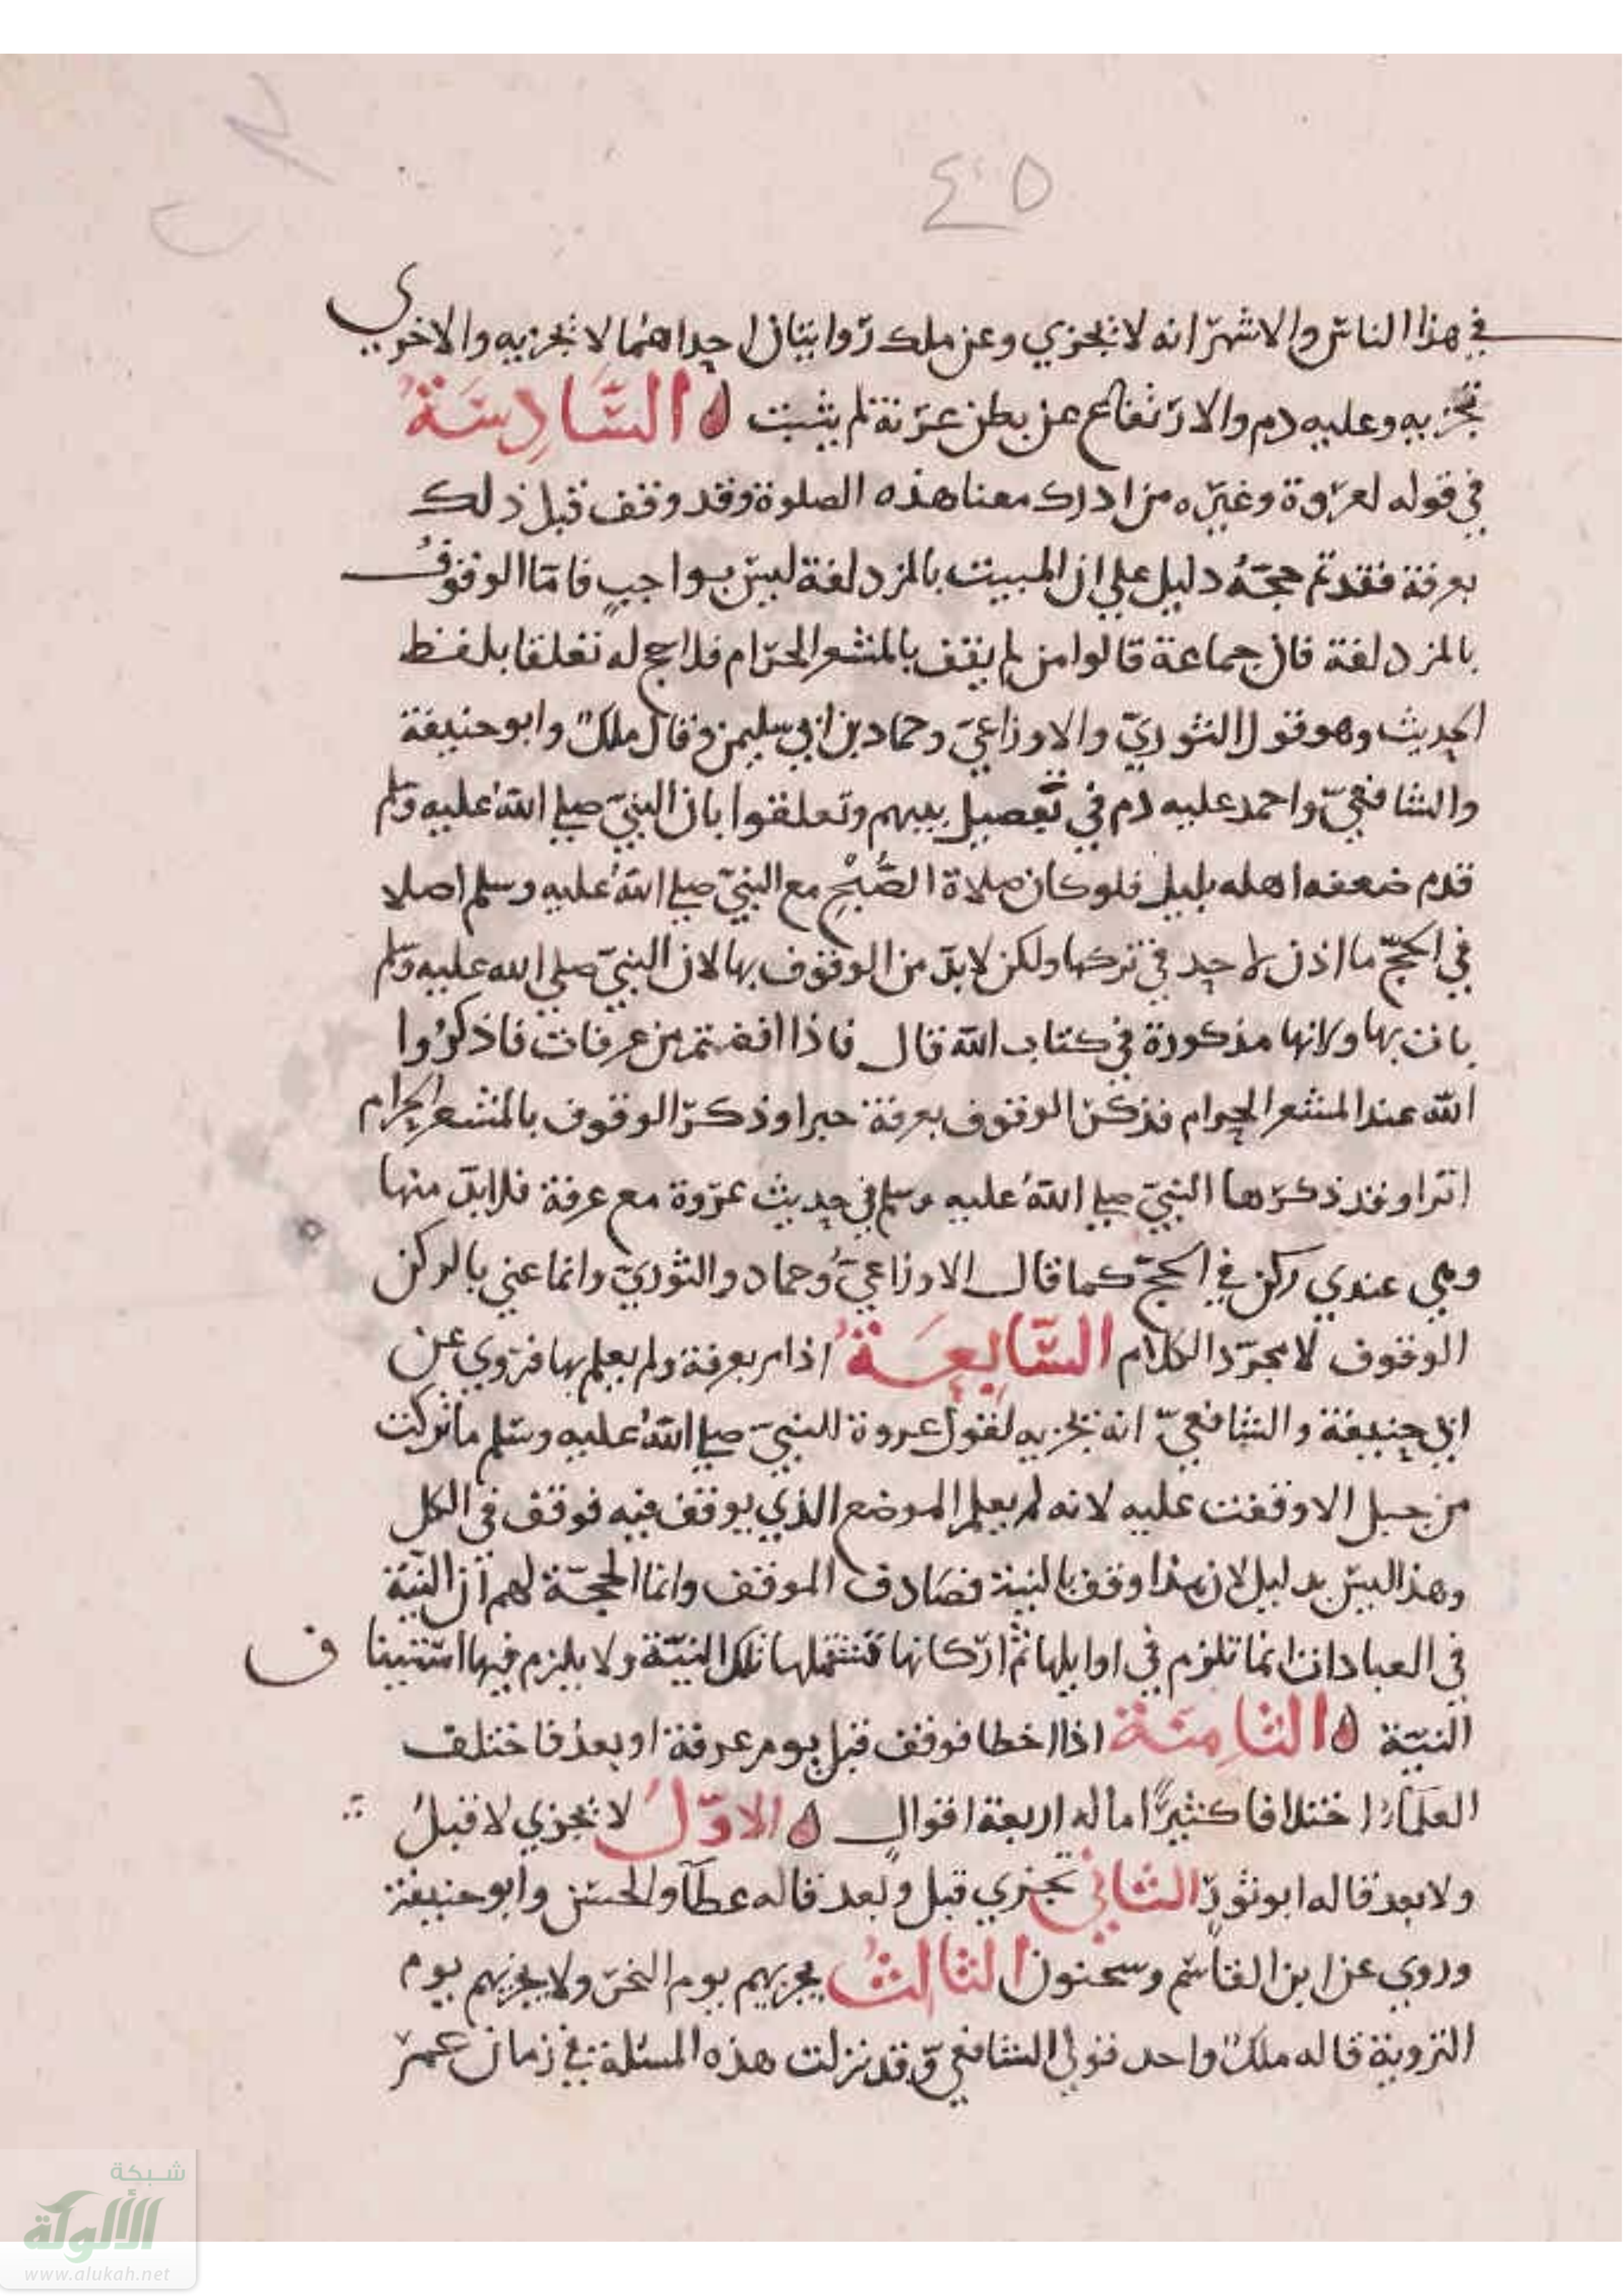 ٤٠٥
في هذا الناس والاشهر انه لا تجزي وعن ملك روايتان احداهما لا تجزيه والاخرى
تجزيه وعليه دم والارتفاع عن بطن عرنة لم يثبت ه السَّادِسَةُ
في قوله لعروة وغيره من ادرك معنا هذه الصلوة وقد وقف قبل ذلك
بعرفة فقد تم حجهُ دليل علي ان المبيت بالمزدلفة ليس بواجبٍ فامّا الوقوفُ
بالمزدلفة فان جماعة قالوا من لم يقف بالمشعر الحرام فلا حج له تعلقا بلفظ
الحديث وهو قول الثوريّ والاوزاعيّ وحماد بن ابي سليمن وقال ملكٌ وابو حنيفة
والشافعيّ واحمد عليه دم في تفصيل بينهم وتعلقوا بان النبيّ صلي اللهُ عليه وسلم
قدم ضعفه اهله بليل فلو كان صلاة الصُّبْحِ مع النبيّ صلي اللهُ عليه وسلم اصلا
في الحجّ ما اذن لاحد في تركها ولكن لا بدّ من الوقوف بها لان النبيّ صلي الله عليه وسلم
بات بها ولانها مذكورة في كتاب الله قال فاذا افضتم من عرفات فاذكرُوا
اللّٰه عند المشعر الحرام فذكر الوقوف بعرفة خبرا وذكر الوقوف بالمشعر الحرام
امرا وقد ذكرها النبيّ صلي اللهُ عليه وسلم في حديث عروة مع عرفة فلا بدّ منها
وهي عندي ركن في الحجّ كما قال الاوزاعيُّ وحماد والثوريّ وانما عني بالركن
الوقوف لا مجرّد الكلام السَّابِعَةُ اذا مر بعرفة ولم يعلم بها فروي عن
ابي حنيفة والشافعيّ انه تجزيه لقول عروة للنبيّ صلي اللهُ عليه وسلم ما تركت
من جبل الا وقفت عليه لانه لم يعلم الموضع الذي يوقف فيه فوقف في الكل
وهذا ليس بدليل لان هذا وقف بالنية فصَادف الموقف وانما الحجّة لهم ان النّيّة
في العبادات انما تلزم في اوايلها ثم اركانها تشتملها تلك النيّة ولا يلزم فيها استينا ف
النيّة ه الثامِنَة اذا اخطا فوقف قبل يوم عرفة او بعدُ فاختلف
العلمآءُ اختلافا كثيرًا اماله اربعة اقوالٍ ه الاوّلُ لا تجزي لا قبلُ
ولا بعد قاله ابو ثورٍ الثاني تجزي قبل وبعد قاله عطآ والحسن وابو حنيفة
وروي عن ابن القاسم وسحنون الثالثُ يجزيهم يوم النحر ولا يجزيهم يوم
التروية قاله ملكٌ واحد قولي الشافعي وقد نزلت هذه المسئلة في زمان عمر
شبكة
الألوكة
www.alukah.net